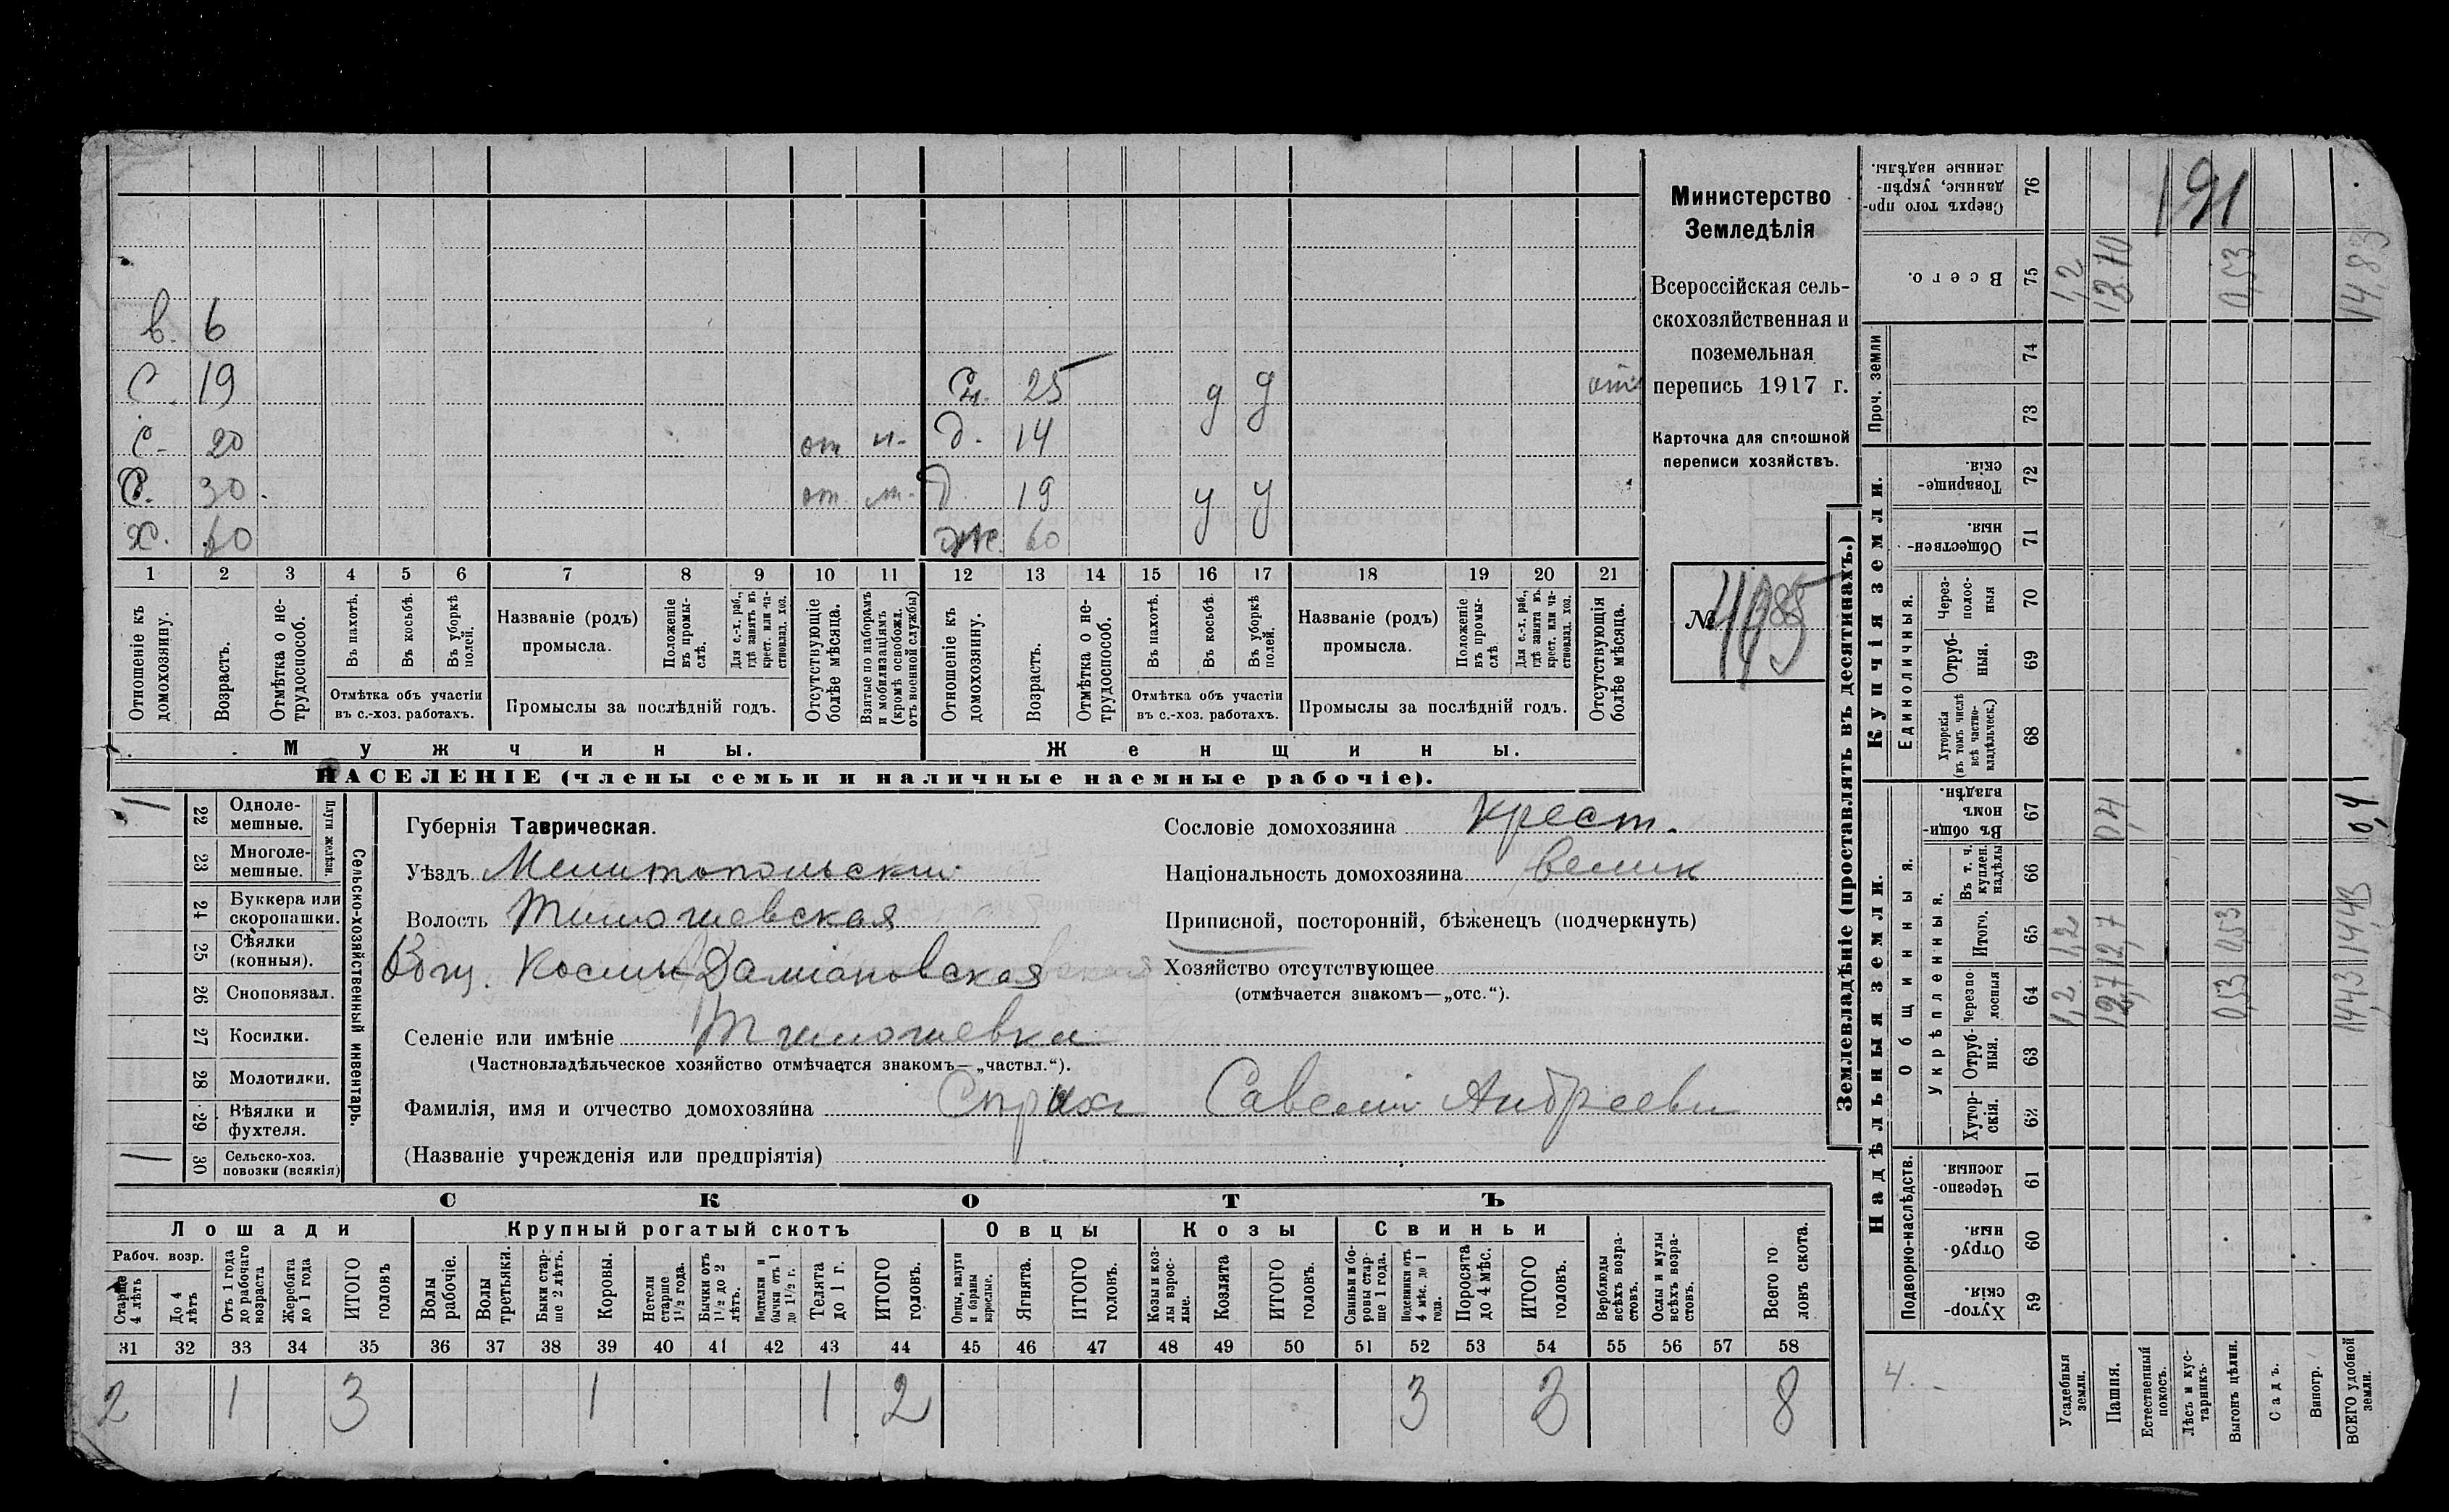 Министерство
Земледѣлія
Всероссійская сель-
скохозяйственная и
поземельная
перепись 1917 г.
Карточка для сплошной
переписи хозяйствъ.
№ 4985
в. 6
С 19 Сн. 25 у у от
С. 20 от н. д. 14
С. 30 от м. д 19 у у
Х. 60 Же. 60
1 2 3 4 5 6 7 8 9 10 11 12 13 14 15 16 17 18 19 20 21
Отношеніе къ домохозяину.
Возрастъ.
Отмѣтка о не-трудоспособ.
Въ пахотѣ.
Въ косьбѣ.
Въ уборкѣ полей.
Отмѣтка объ участіи въ с.-хоз. работахъ.
Названіе (родъ) промысла.
Положеніе въ промы-слѣ.
Для с.-х. раб., гдѣ занятъ въ крест. или ча-стновлад. хоз.
Промыслы за послѣдній годъ.
Отсутствующіе болѣе мѣсяца.
Взятые по наборамъ и мобилизаціямъ (кромѣ освобожд. отъ военной службы)
Отношеніе къ домохозяину.
Возрастъ.
Отмѣтка о не-трудоспособ.
Въ пахотѣ.
Въ косьбѣ.
Въ уборкѣ полей.
Отмѣтка объ участіи въ с.-хоз. работахъ.
Названіе (родъ) промысла.
Положеніе въ промы-слѣ.
Для с.-х. раб., гдѣ занятъ въ крест. или ча-стновлад. хоз.
Промыслы за послѣдній годъ.
Отсутствующія болѣе мѣсяца.
Мужчины. Женщины.
НАСЕЛЕНІЕ (члены семьи и наличные наемные рабочіе).
22 Одноле-мешные. 1
23 Многоле-мешные.
Плуги желѣзн.
24 Буккера или скоропашки.
25 Сѣялки (конныя).
26 Сноповязал.
27 Косилки.
28 Молотилки.
29 Вѣялки и фухтеля.
30 Сельско-хоз. повозки (всякія) 1
Сельско-хозяйственный инвентарь.
Губернія Таврическая.
Уѣздъ Мелитопольский
Волость Тимошевская
Общ. Космы-Даміановская
Селеніе или имѣніе Тимошевка
(Частновладѣльческое хозяйство отмѣчается знакомъ—„частвл.“).
Фамилія, имя и отчество домохозяина Спраха Савелий Андреевич
(Названіе учрежденія или предпріятія)
Сословіе домохозяина крест.
Національность домохозяина велик
Приписной, посторонній, бѣженецъ (подчеркнуть)
Хозяйство отсутствующее
(отмѣчается знакомъ—„отс.“).
СКОТЪ
Лошади Крупный рогатый скотъ Овцы Козы Свиньи
Рабоч. возр.
Старше 4 лѣтъ
До 4 лѣтъ
Отъ 1 года до рабочаго возраста
Жеребята до 1 года
ИТОГО головъ
Волы рабочіе.
Волы третьяки.
Быки стар-ше 2 лѣтъ.
Коровы.
Нетели старше 1½ года.
Бычки отъ 1½ до 2 лѣтъ.
Подтелки и бычки отъ 1 до 1½ г.
Телята до 1 г.
ИТОГО головъ.
Овцы, валухи и бараны взрослые.
Ягнята.
ИТОГО головъ.
Козы и коз-лы взрос-лые.
Козлята
ИТОГО головъ.
Свиньи и бо-ровы стар-ше 1 года.
Подсвинки отъ 4 мѣс. до 1 года.
Поросята до 4 мѣс.
ИТОГО головъ.
Верблюды всѣхъ возра-стовъ.
Ослы и мулы всѣхъ возра-стовъ.
Всего го ловъ скота.
31 32 33 34 35 36 37 38 39 40 41 42 43 44 45 46 47 48 49 50 51 52 53 54 55 56 57 58
2 1 3 1 1 2 3 3 8
Землевладѣніе (проставлять въ десятинахъ.)
191
Сверхъ того про-данные, укрѣп-ленные надѣлы. 76
Всего. 75 1,2 13.10 0,53 14,83
Проч. земли 74 73
Купчія земли.
Товарище-скія. 72
Обществен-ныя. 71
Единоличныя.
Через-полос-ныя 70
Отруб-ныя. 69
Хуторскія (въ томъ числѣ всѣ частно-владѣльческ.) 68
Надѣльныя земли.
Общинныя.
Въ общи-номъ владѣн. 67 0,4 0,4
Укрѣпленныя.
Въ т. ч. куплен. надѣлы 66
Итого. 65 1,2 12,7 0,53 14,43
Черезпо-лосныя 64 1,2 12,7 0,53 14,43
Отруб-ныя. 63
Хутор-скія. 62
Подворно-наслѣдств.
Черезпо-лосныя 61
Отруб-ныя. 60
Хутор-скія. 59
4.
Усадебныя земли.
Пашня.
Естественный покосъ.
Лѣсъ и кус-тарникъ.
Выгонъ цѣлин.
Садъ.
Виногр.
ВСЕГО удобной земли.